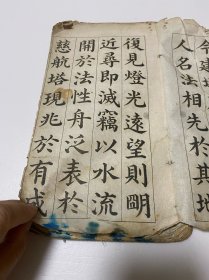 令建塔
人名法相先於其地
復見燈光遠望則明
近尋即滅竊以水流
開於法性舟泛表於
慈航塔現兆於有成